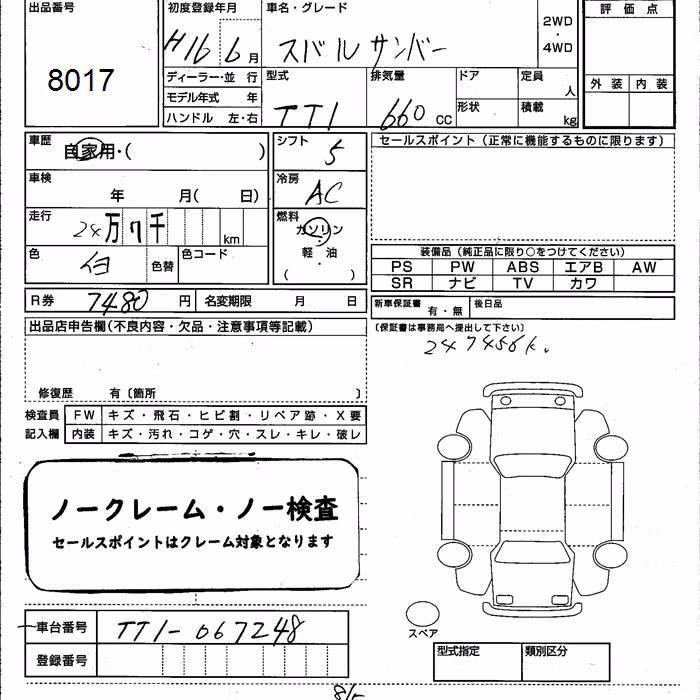 出品番号
8017
初度登録年月
H16 6月
車名・グレード
スバル サンバー
2WD
・
4WD
評価点
外装 内装
ディーラー・並 行
モデル年式 年
ハンドル 左・右
型式
TT1
排気量
660 cc
ドア
形状
定員
人
積載
kg
車歴
自家用・( )
シフト
5
車検
年 月( 日)
冷房
AC
走行
24万7千 km
燃料
ガソリン
・
軽 油
( )
色
色替
色コード
R券 7480 円
名変期限 月 日
セールスポイント (正常に機能するものに限ります)
装備品 (純正品に限り○をつけてください)
PS PW ABS エアB AW
SR ナビ TV カワ
新車保証書
有・無
後日品
(保証書は事務局へ提出して下さい)
247456k.
出品店申告欄(不良内容・欠品・注意事項等記載)
修復歴 有〔箇所 〕
検査員 FW キズ・飛石・ヒビ割・リペア跡・X要
記入欄 内装 キズ・汚れ・コゲ・穴・スレ・キレ・破レ
ノークレーム・ノー検査
セールスポイントはクレーム対象となります
車台番号 TT1-067248
登録番号
スペア
型式指定
類別区分